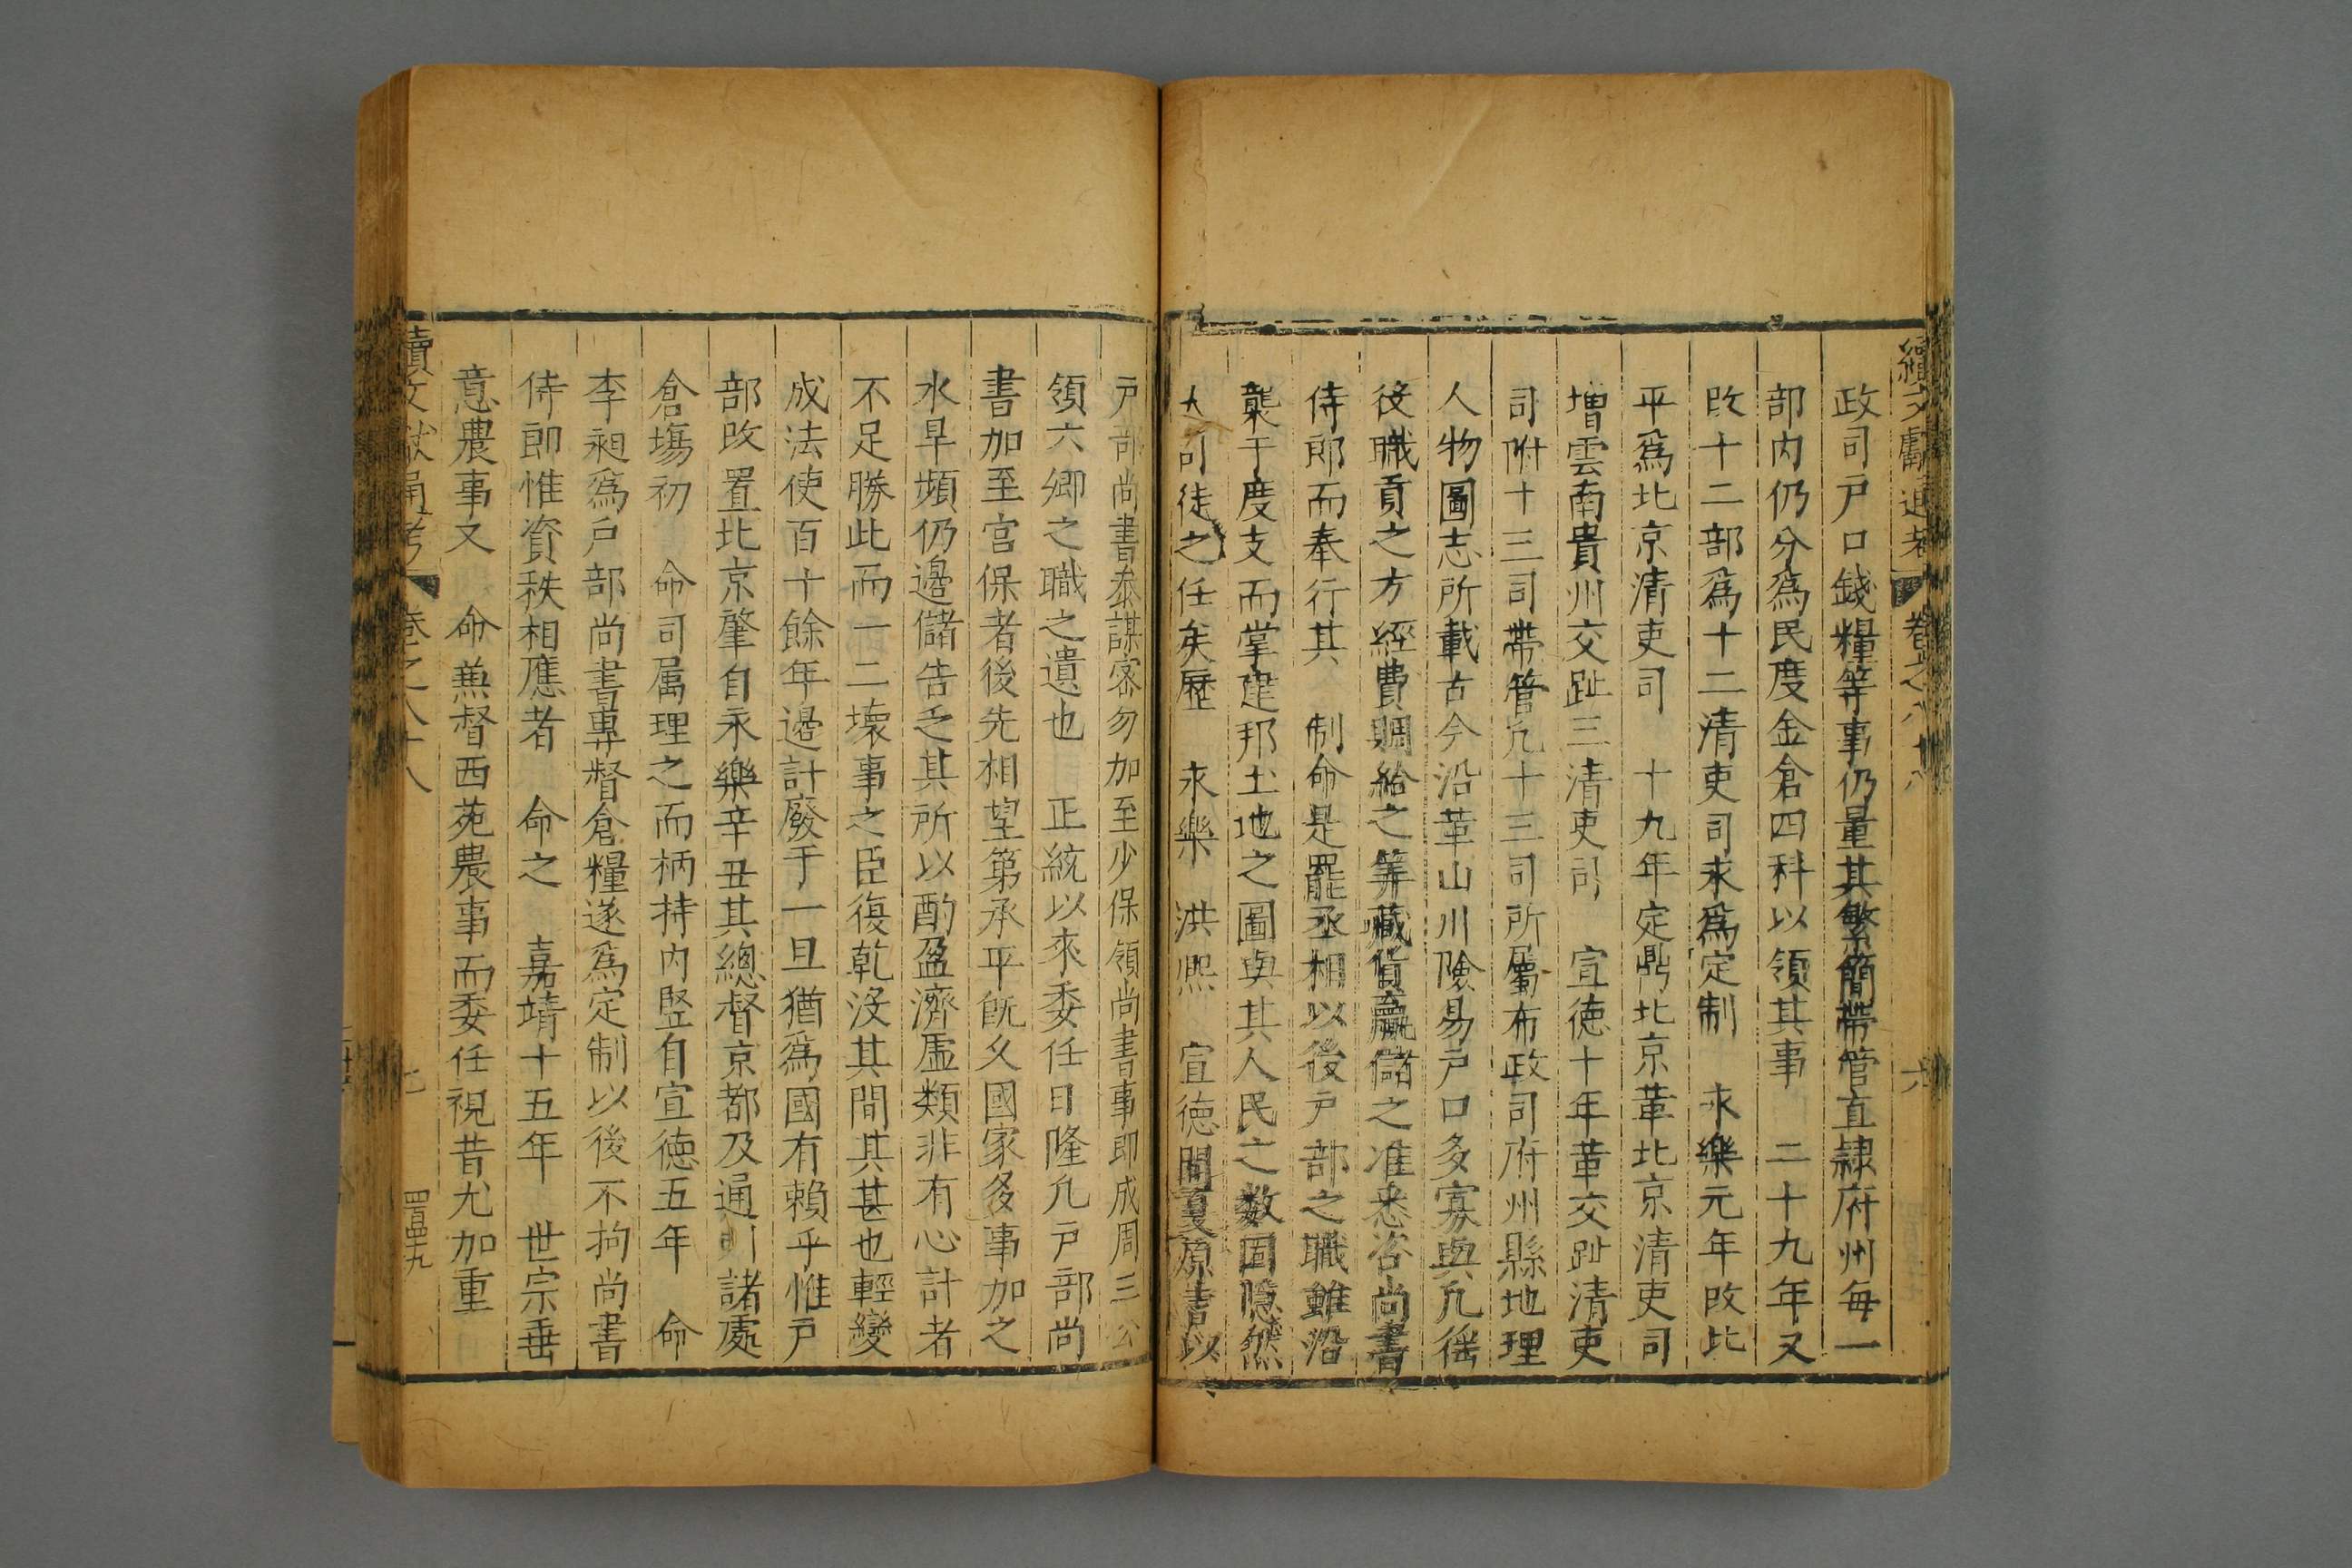 續文獻通考 卷之八十八 六
政司戸口錢糧等事仍量其繁簡帶管直隷府州每一
部内仍分爲民度金倉四科以領其事 二十九年又
改十二部爲十二清吏司永爲定制 永樂元年改北
平爲北京清吏司 十九年定鼎北京革北京清吏司
増雲南貴州交趾三清吏司 宣徳十年革交趾清吏
司附十三司帶管凢十三司所屬布政司府州縣地理
人物圖志所載古今沿革山川險易戸口多寡與凢徭
役職貢之方經費賙給之筭藏貨贏儲之准悉咨尚書
侍郎而奉行其 制命是罷丞相以後戸部之職雖沿
襲于度支而掌建邦土地之圖與其人民之数固隠然
大司徒之任矣歷 永樂 洪熈 宣徳間夏原吉以
戸部尚書叅謀密勿加至少保領尚書事即成周三公
領六卿之職之遺也 正統以來委任日隆凢戸部尚
書加至宫保者後先相望第承平旣乆國家多事加之
水旱頻仍邊儲告乏其所以酌盈濟虛類非有心計者
不足勝此而一二壊事之臣復乾没其間其甚也輕變
成法使百十餘年邊計廢于一旦猶爲國有賴乎惟戸
部改置北京肇自永樂辛丑其總督京都及通州諸處
倉塲初 命司属理之而柄持内竪自宣徳五年 命
李昶爲戸部尚書專督倉糧遂爲定制以後不拘尚書
侍郎惟資秩相應者 命之 嘉靖十五年 世宗垂
意農事又 命兼督西苑農事而委任視昔尤加重
續文獻通考 卷之八十八 七 四百四十九